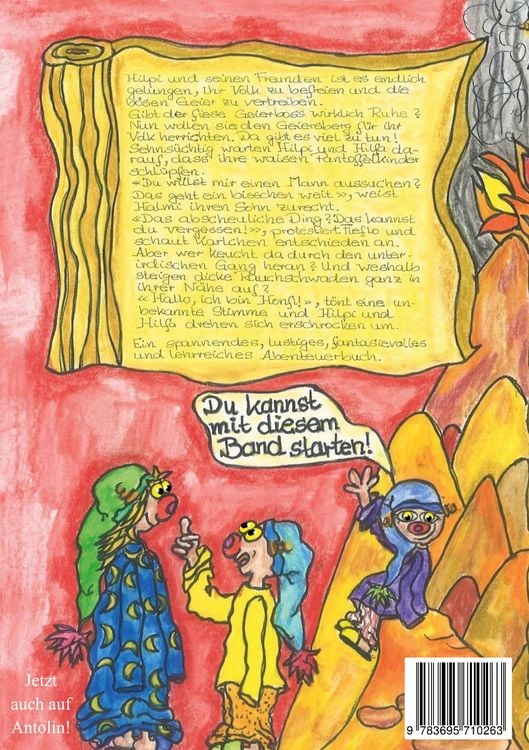 Hilpi und seinen Freunden ist es endlich
gelungen, ihr Volk zu befreien und die
bösen Geier zu vertreiben.
Gibt der fiese Geierboss wirklich Ruhe?
Nun wollen sie den Geiersberg für ihr
Volk herrichten. Da gibt es viel zu tun!
Sehnsüchtig warten Hilpi und Hilfa da-
rauf, dass ihre waisen Pantoffelkinder
schlüpfen.
«Du willst mir einen Mann aussuchen?
Das geht ein bisschen weit», weist
Halmi ihren Sohn zurecht.
«Das abscheuliche Ding? Das kannst
du vergessen!», protestiert Heflo und
schaut Karlchen entschieden an.
Aber wer keucht da durch den unter-
irdischen Gang heran? Und weshalb
steigen dicke Rauchschwaden ganz in
ihrer Nähe auf?
«Hallo, ich bin Honfi!», tönt eine un-
bekannte Stimme und Hilpi und
Hilfa drehen sich erschrocken um.
Ein spannendes, lustiges, fantasievolles
und lehrreiches Abenteuerbuch.
Du kannst
mit diesem
Band starten!
Jetzt
auch auf
Antolin!
9 783695 710263